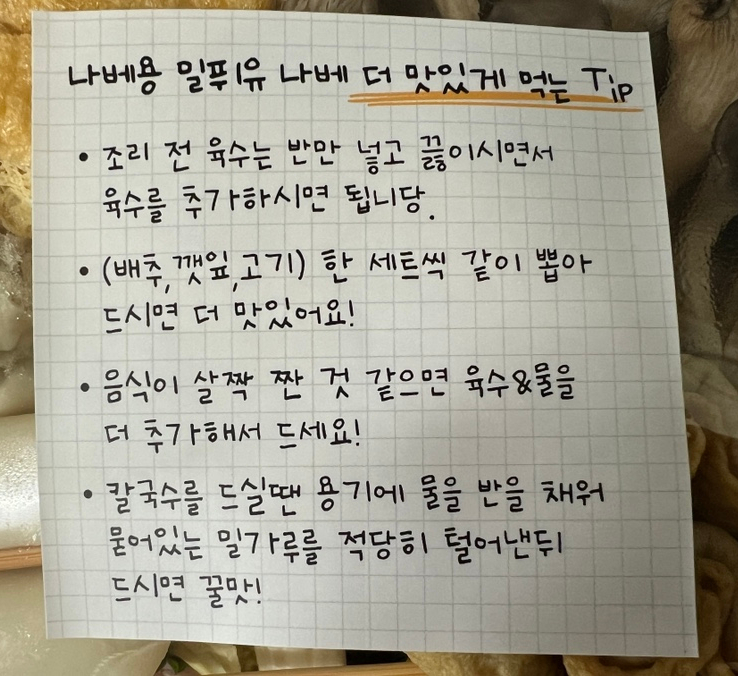 나베용 밀푀유 나베 더 맛있게 먹는 Tip
• 조리 전 육수는 반만 넣고 끓이시면서
육수를 추가하시면 됩니당.
• (배추,깻잎,고기) 한 세트씩 같이 뽑아
드시면 더 맛있어요!
• 음식이 살짝 짠 것 같으면 육수&물을
더 추가해서 드세요!
• 칼국수를 드실땐 용기에 물을 반을 채워
묻어있는 밀가루를 적당히 털어낸뒤
드시면 꿀맛!